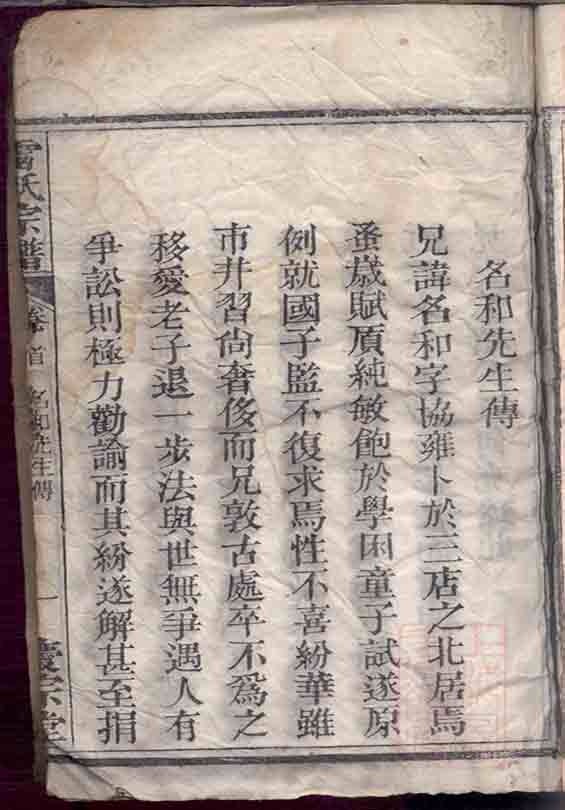 名和先生傳
兄諱名和字協雍卜於三店之北居焉
蚤歲賦頂純敏飽於學困童子試遂原
例就國子監不復求焉性不喜紛華雖
市井習尙奢侈而兄敦古處卒不爲之
移愛老子退一步法與世無爭遇人有
爭訟則極力勸諭而其紛遂解甚至捐
雷氏宗譜
卷首
名和先生傳
一
慶宗堂